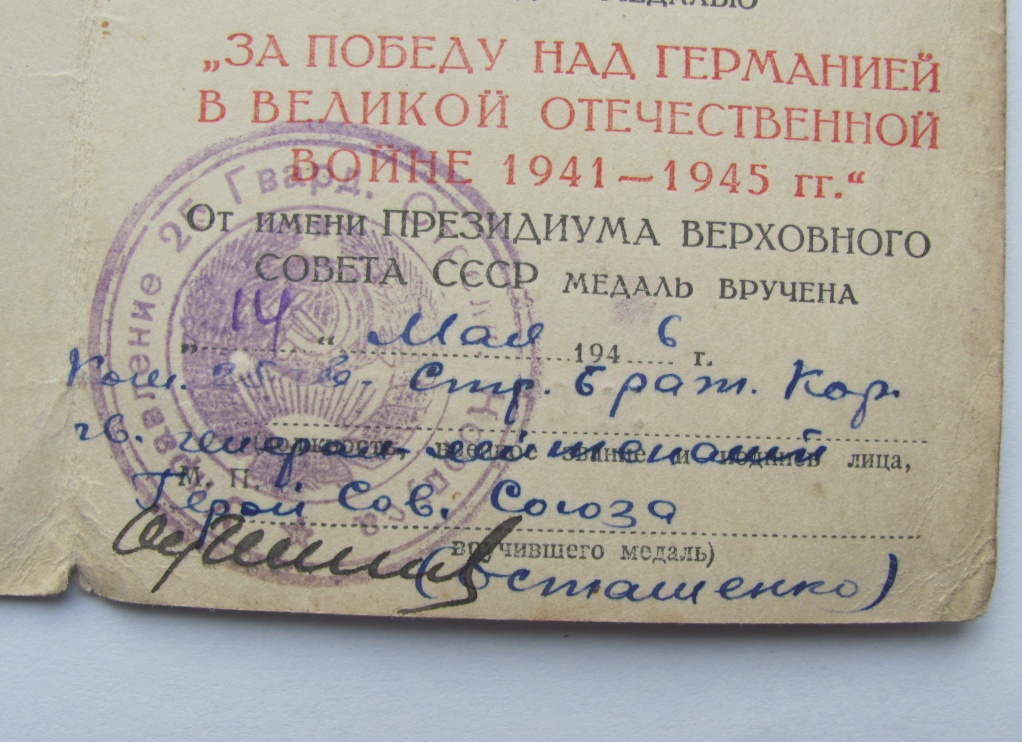 МЕДАЛЬЮ
„ЗА ПОБЕДУ НАД ГЕРМАНИЕЙ
В ВЕЛИКОЙ ОТЕЧЕСТВЕННОЙ
ВОЙНЕ 1941—1945 гг.“
От имени ПРЕЗИДИУМА ВЕРХОВНОГО
СОВЕТА СССР МЕДАЛЬ ВРУЧЕНА
„14“ Мая 1946 г.
Ком. 25 Стр. Кор.
гв. генерал лейтенант
(должность, военное звание и подпись лица,
М. П.
Герой Сов. Союза
вручившего медаль)
(Осташенко)
Управление 25 Гвард.